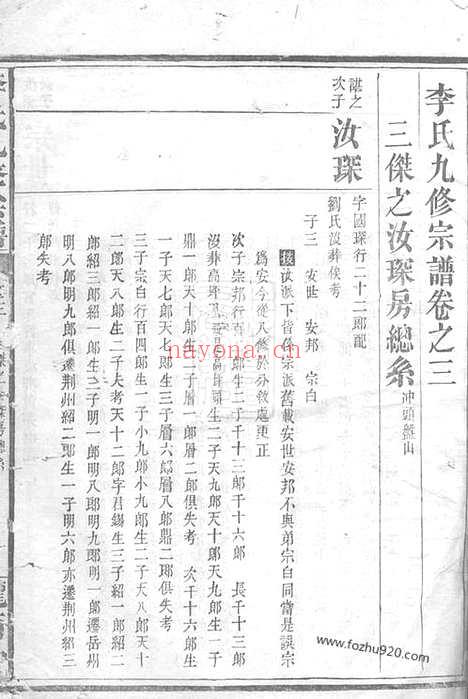 李氏九修宗譜卷之三
三傑之汝琛房總系 冲頭盤山
諶之次子
汝琛
字國琛行二十二郎配
劉氏沒葬俟考
子三 安世 安邦 宗白
按汝派下皆係宗派舊載安世安邦不與弟宗白同當是誤宗
爲安今從八修於分敘處更正
次子宗邦行百 郎生二子千十三郎千十六郎 長千十三郎
沒葬高 生二子天十郎天九郎生一子
鼎一郎天十郎生二子層一郎層二郎俱失考 次千十六郎生
一子天七郎天七郎生三子層六郎層八郎鼎二郎俱失考
三子宗白行百四郎生一子小九郎小九郎生二子天八郎天十
二郎天八郎生二子失考天十二郎字君錫生三子紹一郎紹二
郎紹三郎紹一郎生二子明一郎明八郎明一郎遷岳州
明八郎明九郎俱遷荆州紹二郎生一子明六郎亦遷荆州紹三
郎失考
nayona.cn
www.fozhu920.com